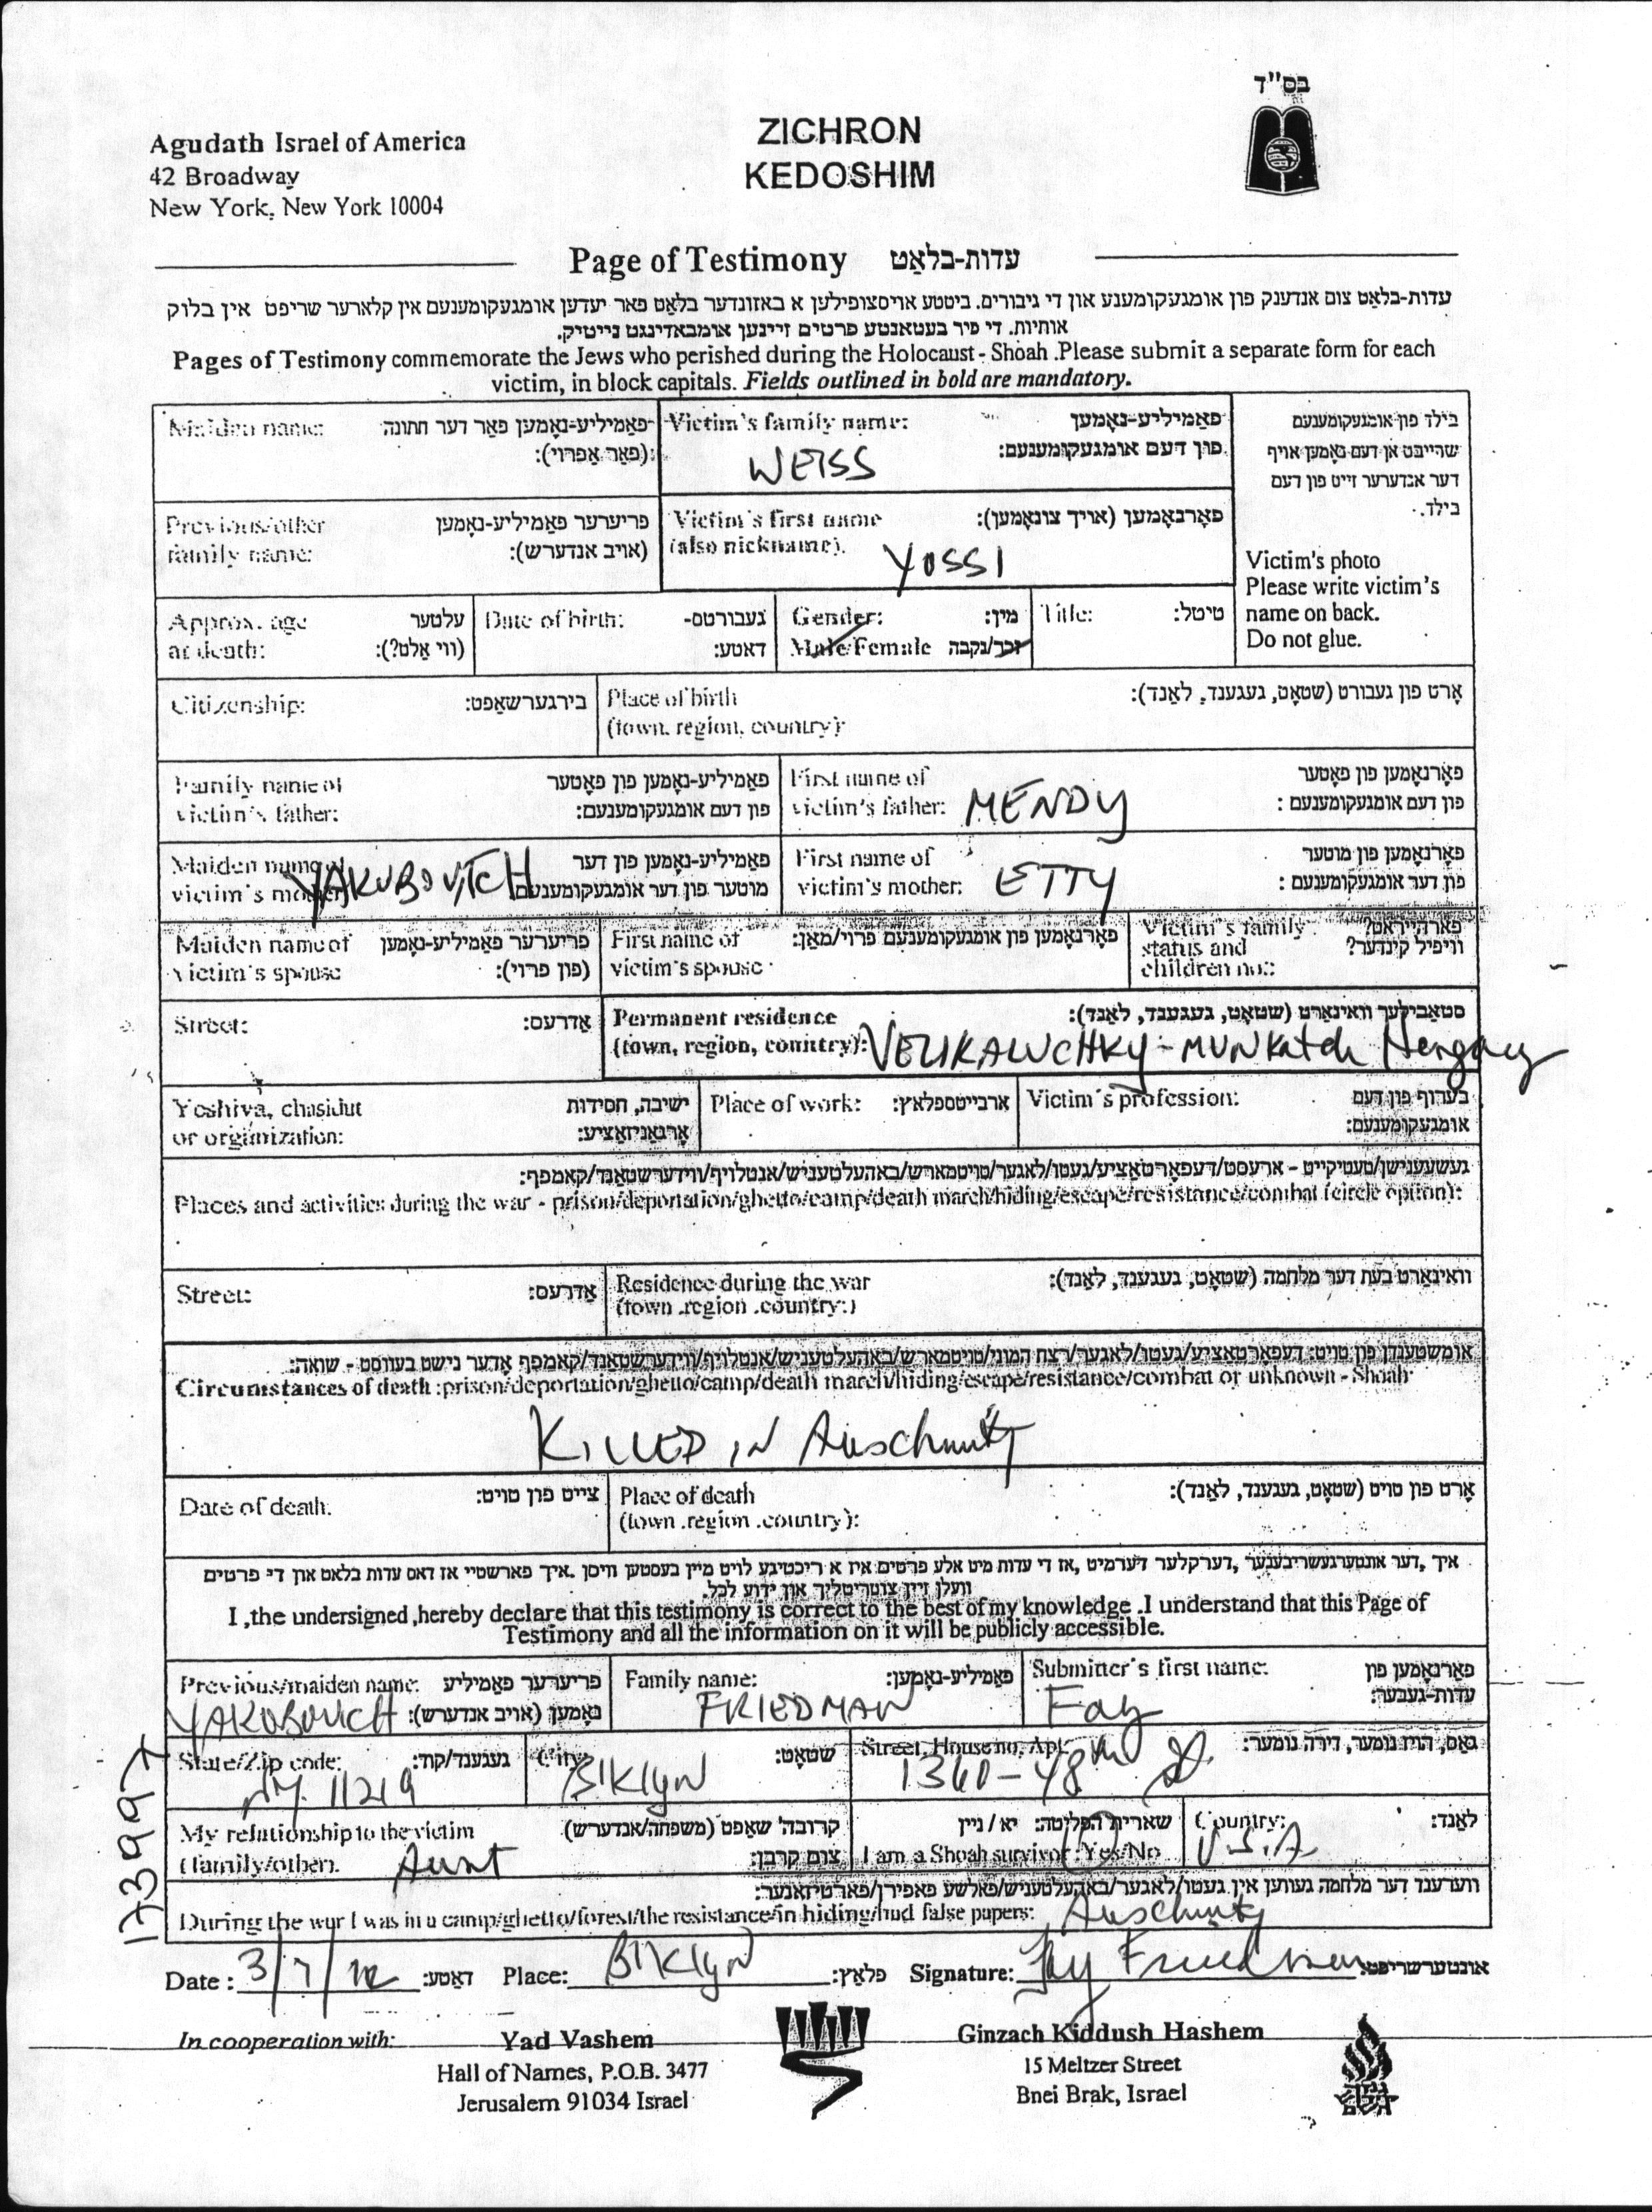 בס"ד
Agudath Israel of America
42 Broadway
New York, New York 10004
ZICHRON
KEDOSHIM
Page of Testimony עדות-בלאַט
עדות-בלאַט צום אנדענק פון אומגעקומענע און די גיבורים. ביטטע אויסצופילען א באזונדער בלאַט פאר יעדען אומגעקומענעם אין קלארער שריפט אין בלוק
אותיות. די פיר בעטאנטע פרטים זיינען אומבאדינגט נייטיק.
Pages of Testimony commemorate the Jews who perished during the Holocaust - Shoah .Please submit a separate form for each
victim, in block capitals. Fields outlined in bold are mandatory.
Maiden name: פאַמיליע-נאָמען פאַר דער חתונה
(פאַר אַפרוי):
Victim's family name: פאַמיליע-נאָמען
פון דעם אומגעקומענעם:
WEISS
בילד פון אומגעקומענעם
שהייבט אן דעם נאָמען אויף
דער אנדערער זייט פון דעם
בילד.
Previous/other פריערער פאַמיליע-נאָמען
family name: (אויב אנדערש):
Victim's first name פאָרנאָמען (אויך צונאָמען):
(also nickname).
YOSSI
Victim's photo
Please write victim's
name on back.
Do not glue.
Approx. age עלטער
at death: (ווי אַלט?):
Date of birth: געבורטס-
דאטע:
Gender: מין:
Male/Female זכר/נקבה
Title: טיטל:
Citizenship: בירגערשאַפט:
Place of birth אָרט פון געבורט (שטאָט, געגענד, לאַנד):
(town, region, country):
Family name of פאַמיליע-נאָמען פון פאָטער
victim's father: פון דעם אומגעקומענעם:
First name of פאָרנאָמען פון פאָטער
victim's father: פון דעם אומגעקומענעם :
MENDY
Maiden name of פאַמיליע-נאָמען פון דער
victim's mother: מוטער פון דער אומגעקומענעם
YAKUBOVITCH
First name of פאָרנאָמען פון מוטער
victim's mother: פון דער אומגעקומענעם :
ETTY
Maiden name of פריערער פאַמיליע-נאָמען
victim's spouse (פון פרוי):
First name of פאָרנאָמען פון אומגעקומענעם פרוי/מאַן:
victim's spouse
Victim's family פארהייראט?
status and וויפיל קינדער?
children no.:
Street: אַדרעס:
Permanent residence סטאַבילער וואינאָרט (שטאָט, געגענד, לאַנד):
(town, region, country):
VELIKALUCHKY - MUNKatch Hungary
Yeshiva, chasidut ישיבה, חסידות
or organization: אָרגאַניזאַציע:
Place of work: ארבייטספלאץ:
Victim's profession: בערוף פון דעם
אומגעקומענעם:
געשעענישן/טעטיקייט - ארעסט/דעפאָרטאַציע/געטו/לאגער/טויטמארש/באהעלטעניש/אנטלויף/ווידערשטאַנד/קאמפף:
Places and activities during the war - prison/deportation/ghetto/camp/death march/hiding/escape/resistance/combat (circle option):
Street: אַדרעס:
Residence during the war וואינאָרט בעת דער מלחמה (שטאָט, געגענד, לאַנד):
(town .region .country:)
אומשטענדן פון טויט: דעפאָרטאַציע/געטו/לאגער/רצח המוני/טויטמארש/באהעלטעניש/אנטלויף/ווידערשטאַנד/קאמפף אָדער נישט בעוויסט - שואה:
Circumstances of death :prison/deportation/ghetto/camp/death march/hiding/escape/resistance/combat or unknown - Shoah
KILLED IN Auschwitz
Date of death. צייט פון טויט:
Place of death אָרט פון טויט (שטאָט, געגענד, לאַנד):
(town .region .country):
איך ,דער אונטערגעשריבענער ,דערקלער דערמיט ,אז די עדות מיט אלע פרטים איז א ריכטיגע לויט מיין בעסטען וויסן .איך פארשטיי אז דאס עדות בלאט און די פרטים
וועלן זיין צוטריטליך און ידוע לכל.
I ,the undersigned ,hereby declare that this testimony is correct to the best of my knowledge .I understand that this Page of
Testimony and all the information on it will be publicly accessible.
Previous/maiden name: פריערער פאַמיליע
נאָמען (אויב אנדערש):
YAKOBOVICH
Family name: פאַמיליע-נאָמען:
FRIEDMAN
Submitter's first name: פאָרנאָמען פון
עדות-געבער:
Fay
State/Zip code: געגענד/קוד:
NY 11219
City: שטאָט:
Bklyn
Street, House no, Apt. גאַס, הויז נומער, דירה נומער:
1360 - 48th St
My relationship to the victim קרובה' שאַפט (משפחה/אנדערש)
(family/other). צום קרבן:
Aunt
שארית הפליטה: יא / ניין
I am a Shoah survivor :Yes/No
Country: לאַנד:
U.S.A
ווערענד דער מלחמה געווען אין געטו/לאגער/באהעלטעניש/פאלשע פאפירן/פארטיזאנער:
During the war I was in a camp/ghetto/forest/the resistance/in hiding/had false papers: Auschwitz
173997
Date : 3/7/12 דאַטע: Place: Bklyn פלאַץ: Signature: Fay Friedman אונטערשריפט
In cooperation with:
Yad Vashem
Hall of Names, P.O.B. 3477
Jerusalem 91034 Israel
Ginzach Kiddush Hashem
15 Meltzer Street
Bnei Brak, Israel